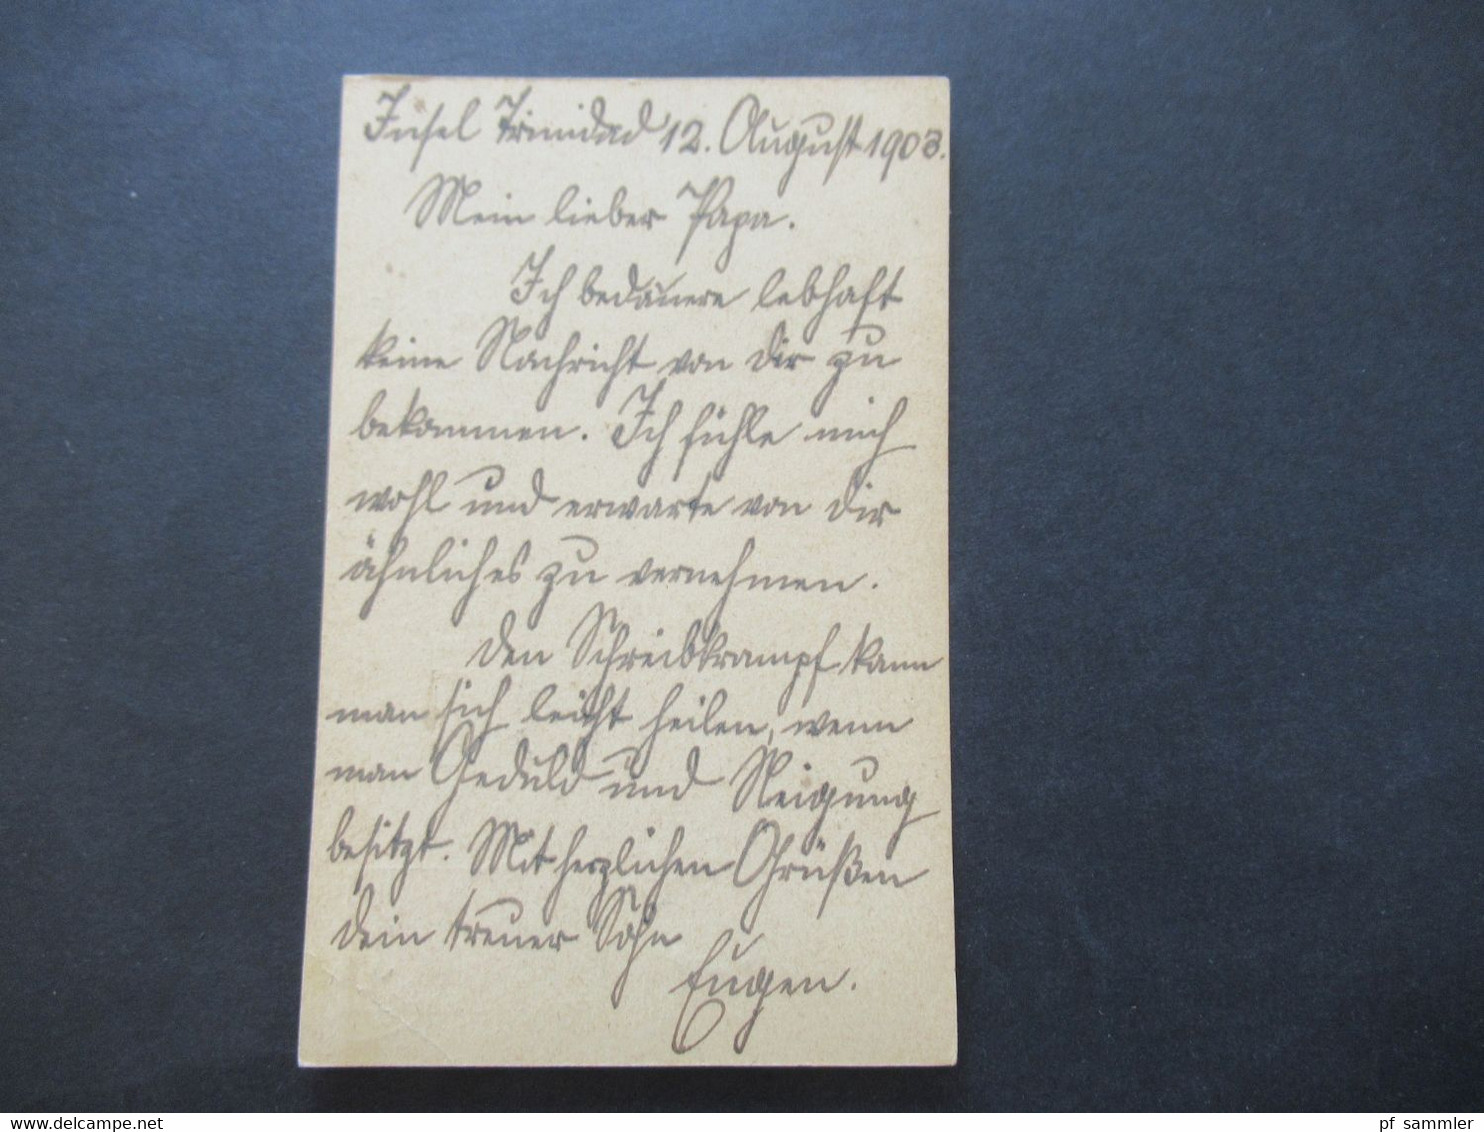 Insel Trinidad 12. August 1903.
Mein lieber Papa.
Ich bedauere lebhaft
keine Nachricht von dir zu
bekommen. Ich fühle mich
wohl und erwarte von dir
ähnliches zu vernehmen.
Den Schreibkrampf kann
man sich leicht heilen, wenn
man Geduld und Neigung
besitzt. Mit herzlichen Grüßen
dein treuer Sohn
Eugen.
www.delcampe.net
pf_sammler